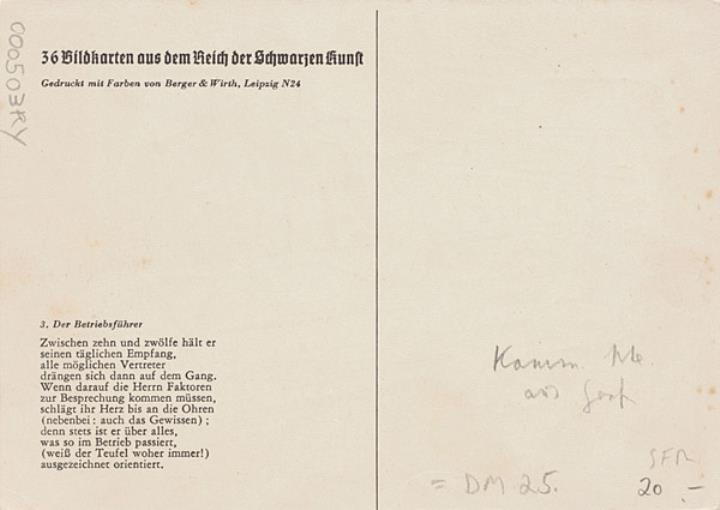 000503RY
36 Bildkarten aus dem Reich der Schwarzen Kunst
Gedruckt mit Farben von Berger & Wirth, Leipzig N24
3. Der Betriebsführer
Zwischen zehn und zwölfe hält er
seinen täglichen Empfang,
alle möglichen Vertreter
drängen sich dann auf dem Gang.
Wenn darauf die Herrn Faktoren
zur Besprechung kommen müssen,
schlägt ihr Herz bis an die Ohren
(nebenbei: auch das Gewissen);
denn stets ist er über alles,
was so im Betrieb passiert,
(weiß der Teufel woher immer!)
ausgezeichnet orientiert.
SFR
= DM 25. 20 –